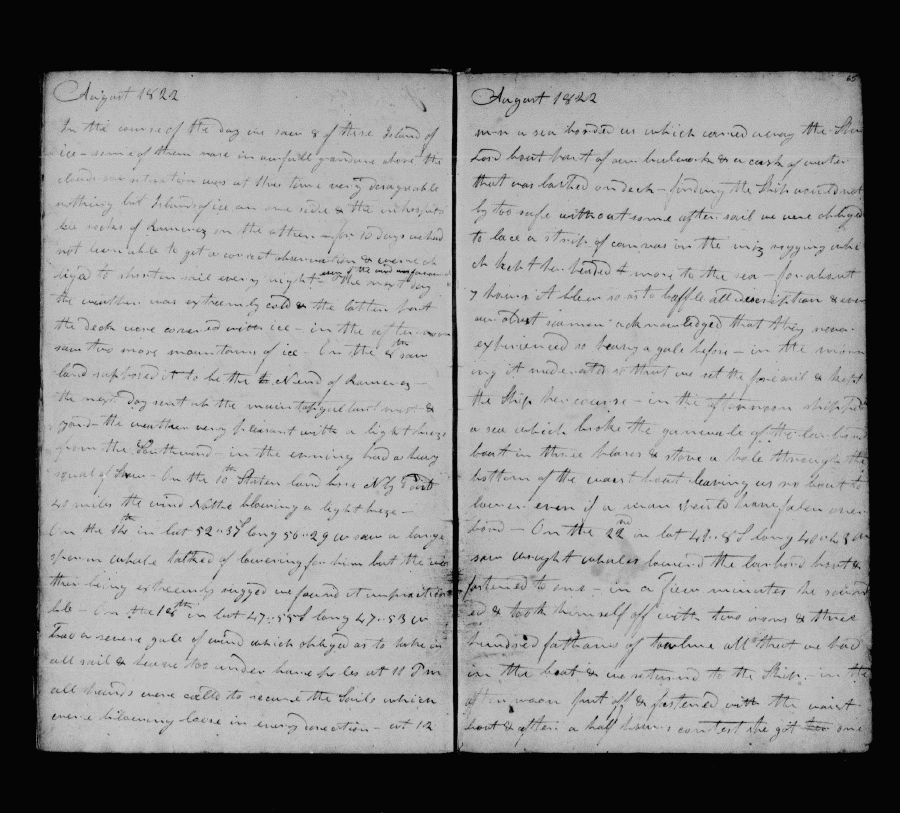 August 1822
In the course of the day we saw 8 of these Islands of
ice - some of them rose in awfull grandure above the
clouds our situation was at this time very desagreable
nothing but Islands of ice on one side & the inhospita
ble rocks of Ramerez on the other - for 10 days we had
not been able to get a correct observation & were ob
liged to shorten sail every night - the next day
the weather was extremely cold & the latter part
the deck were covered with ice - in the afternoon
saw two more mountains of ice - On the 8th saw
land supposed it to be the N end of Ramerez -
the next Day sent up the main topgallant mast &
yard - the weather very pleasant with a light breeze
from the Southward - in the evning had a heavy
squal of Snow - On the 10th Staten land bore
40 miles the wind blowing a light breze -
On the in lat 52"37 S long 56"29 W saw a large
sperm whale talked of lowering for him but the wea
ther being extremely rugged we found it impractica
ble - On the 18th in lat 47"55 S long 47"53 W
Had a severe gale of wind which obliged us to take in
all sail & heave too under bare poles at 11 Pm
all hands were calld to secure the Sails which
were blowing loose in every direction - at 12
65
August 1822
mn a sea borded us which carried away the Star
bord boat part of our bulwarks & a cask of water
that was lashed on deck - finding the Ship would not
ly too safe without some after sail we were obliged
to lace a strip of canvas in the miz rigging whi
ch kept her headed more to the sea - for about
7 hours it blew so as to baffle all discription & even
our oldest seamen acknowledged that they never
experienced so heavy a gale before - in the morn
ing it moderated so that we set the foresail & kept
the Ship her course - in the afternoon shipped
a sea which broke the gunwale of the larbord
boat in three places & stove a hole through the
bottom of the waist boat leaving us no boat to
lower even if a man should have fallen over
bord - On the 22nd in lat 43"8 S long 40"43 W
saw wright whales lowerd the larbord boat &
fastened to one - in a few minutes he sound
ed & took himself off with two irons & three
hundred fathoms of towline all that we had
in the boat & we returned to the Ship - in the
afternoon put off & fastened with the waist
boat & after a half hours contest she got one